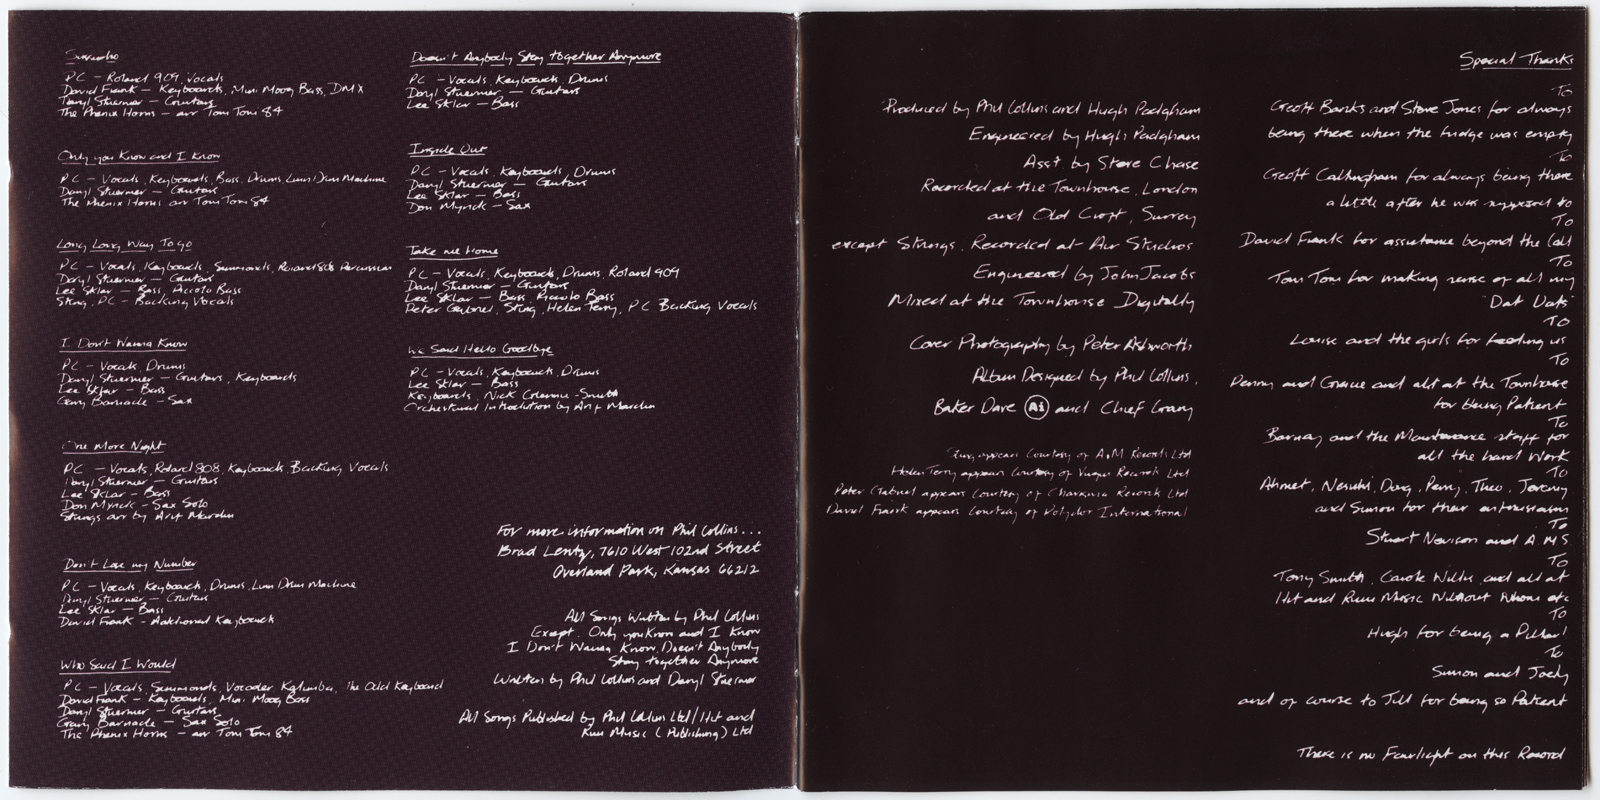 Sussudio
PC – Roland 909, Vocals
David Frank – Keyboards, Mini Moog Bass, DMX
Daryl Stuermer – Guitars
The Phenix Horns – arr Tom Tom 84
Only you Know and I Know
PC – Vocals, Keyboards, Bass, Drums, Linn Drum Machine
Daryl Stuermer – Guitars
The Phenix Horns arr Tom Tom 84
Long Long Way To go
PC – Vocals, Keyboards, Simmonds, Roland 808 Percussion
Daryl Stuermer – Guitars
Lee Sklar – Bass, Piccolo Bass
Sting, PC – Backing Vocals
I Don't Wanna Know
PC – Vocals, Drums
Daryl Stuermer – Guitars, Keyboards
Lee Sklar – Bass
Gary Barnacle – Sax
One More Night
PC – Vocals, Roland 808, Keyboards Backing Vocals
Daryl Stuermer – Guitars
Lee Sklar – Bass
Don Myrick – Sax Solo
Strings arr by Arif Mardin
Don't Lose my Number
PC – Vocals, Keyboards, Drums, Linn Drum Machine
Daryl Stuermer – Guitars
Lee Sklar – Bass
David Frank – Additional Keyboards
Who Said I Would
PC – Vocals, Simmonds, Vocoder Kalimba, the Odd Keyboard
David Frank – Keyboards, Mini Moog Bass
Daryl Stuermer – Guitars
Gary Barnacle – Sax Solo
The Phenix Horns – arr Tom Tom 84
Doesn't Anybody Stay together Anymore
PC – Vocals, Keyboards, Drums
Daryl Stuermer – Guitars
Lee Sklar – Bass
Inside Out
PC – Vocals, Keyboards, Drums
Daryl Stuermer – Guitars
Lee Sklar – Bass
Don Myrick – Sax
Take me Home
PC – Vocals, Keyboards, Drums, Roland 909
Daryl Stuermer – Guitars
Lee Sklar – Bass, Piccolo Bass
Peter Gabriel, Sting, Helen Terry, PC Backing Vocals
We Said Hello Goodbye
PC – Vocals, Keyboards, Drums
Lee Sklar – Bass
Keyboards, Nick Glennie-Smith
Orchestral Introduction by Arif Mardin
For more information on Phil Collins...
Brad Lentz, 7610 West 102nd Street
Overland Park, Kansas 66212
All Songs Written by Phil Collins
Except. Only you Know and I Know
I Don't Wanna Know, Doesn't Anybody
Stay together Anymore
Written by Phil Collins and Daryl Stuermer
All Songs Published by Phil Collins Ltd/Hit and
Run Music (Publishing) Ltd
Produced by Phil Collins and Hugh Padgham
Engineered by Hugh Padgham
Asst by Steve Chase
Recorded at the Townhouse, London
and Old Croft, Surrey
except Strings, Recorded at Air Studios
Engineered by John Jacobs
Mixed at the Townhouse Digitally
Cover Photography by Peter Ashworth
Album Designed by Phil Collins,
Baker Dave Ai and Chief Grany
Sting appears Courtesy of A&M Records Ltd
Helen Terry appears Courtesy of Virgin Records Ltd
Peter Gabriel appears Courtesy of Charisma Records Ltd
David Frank appears Courtesy of Polydor International
Special Thanks
To
Geoff Banks and Steve Jones for always
being there when the fridge was empty
To
Geoff Callingham for always being there
a little after he was supposed to
To
David Frank for assistance beyond the Call
To
Tom Tom for making sense of all my
"Dat Dats"
To
Louise and the girls for feeding us
To
Penny and Gracie and all at the Townhouse
for being Patient
To
Barney and the Maintenance staff for
all the hard Work
To
Ahmet, Nesuhi, Doug, Perry, Theo, Jeremy
and Simon for their enthusiasm
To
Stuart Nevison and AMS
To
Tony Smith, Carole Willis, and all at
Hit and Run Music Without Whom etc
To
Hugh for being a Pillar!
To
Simon and Joely
and of course to Jill for being so Patient
There is no Fairlight on this Record